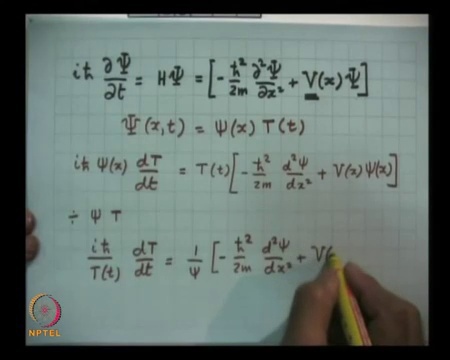 iħ ∂Ψ/∂t = HΨ = [-ħ²/2m ∂²Ψ/∂x² + V(x)Ψ]
Ψ(x,t) = ψ(x) T(t)
iħ ψ(x) dT/dt = T(t)[-ħ²/2m d²ψ/dx² + V(x)ψ(x)]
÷ ψ T
iħ/T(t) dT/dt = 1/ψ [-ħ²/2m d²ψ/dx² + V(
NPTEL